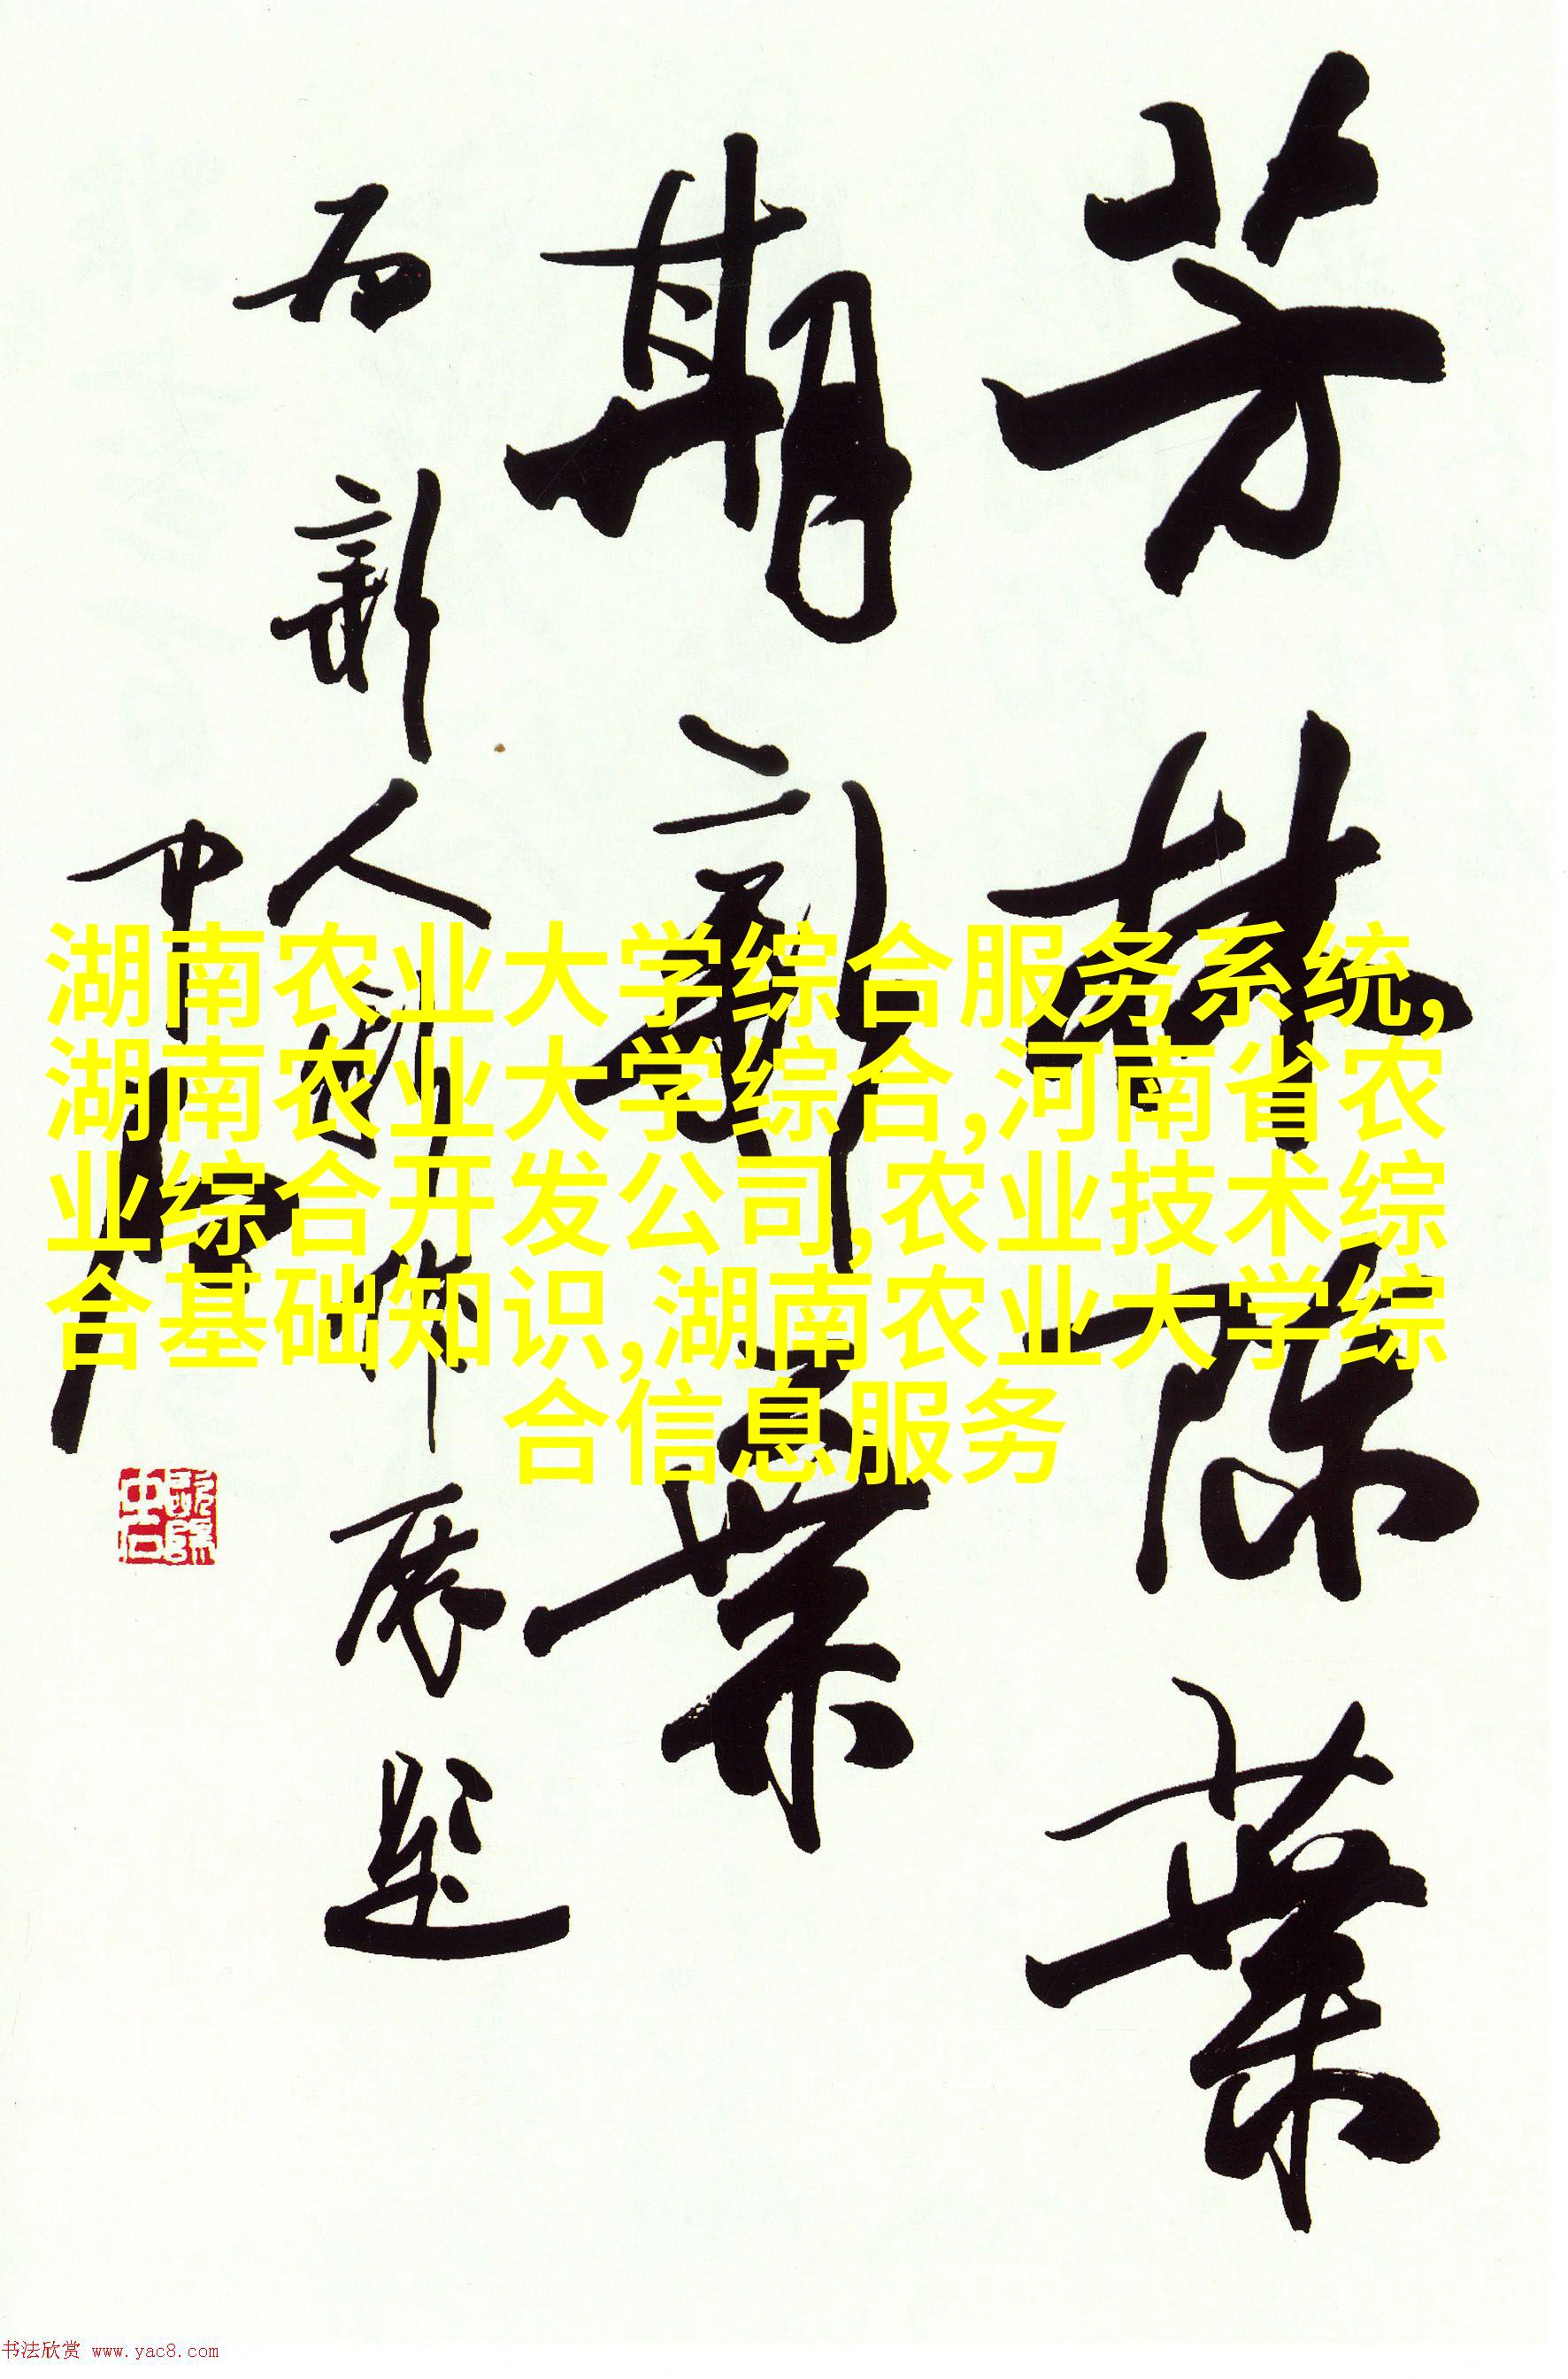 芳林陈葉
期新葉
为新人新作展題
中石
湖南农业大学综合服务系统,
湖南农业大学综合,河南省农
业综合开发公司,农业技术综
合基础知识,湖南农业大学综
合信息服务
书法欣赏 www.yac8.com